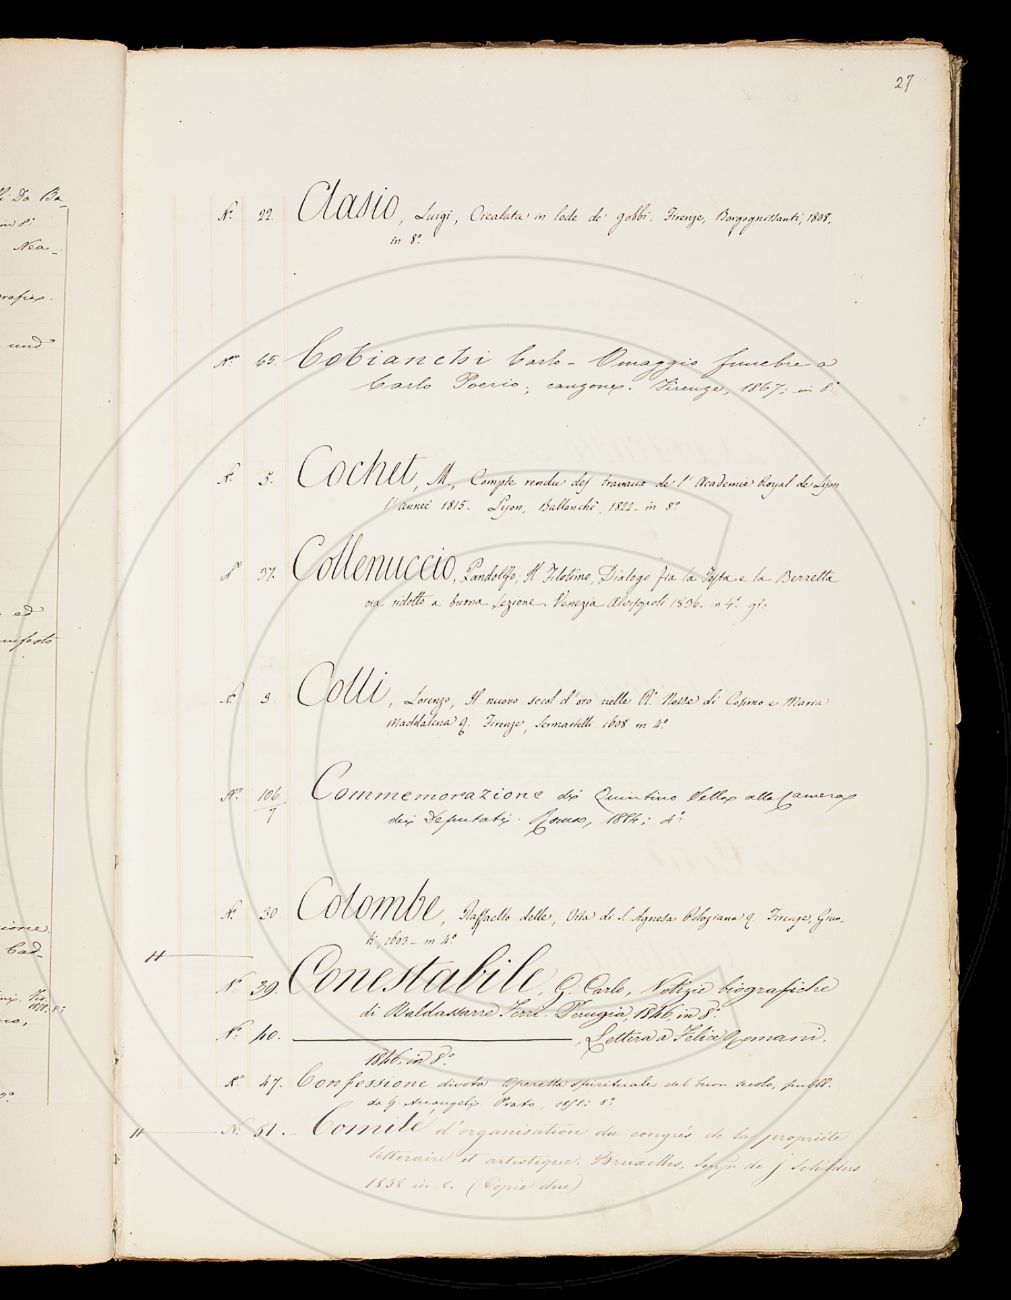 27
N.° 22. Clasio, Luigi, Cicalata in lode de' gobbi. Firenze, Borgognissanti, 1808.
in 8.°
N.° 65. Cobianchi Carlo - Omaggio funebre a
Carlo Poerio; canzone. Firenze, 1867; in 8.°
N.° 5. Cochet, M., Compte rendu des travaux de l'Academie Royal de Lyon
l'année 1815. Lyon, Ballanche, 1822 - in 8.°
N.° 37. Collenuccio, Pandolfo, Il Filotimo, Dialogo fra la Testa e la Berretta
ora ridotto a buona lezione. Venezia Alvisopoli 1836. in 4.° gr.
N.° 3. Colli, Lorenzo, Il nuovo secol d'oro nelle R. Nozze di Cosimo e Maria
Maddalena &. Firenze, Sermartelli 1608 in 4.°
N.° 106/7 Commemorazione di Quintino Sella alla Camera
dei Deputati. Roma, 1884; 4.°
N.° 30. Colombe, Raffaello delle, Vita di S. Agnesa Poliziana &. Firenze, Giun-
ti, 1603 - in 4.°
N.° 39. Conestabile, G. Carlo, Notizie biografiche
di Baldassarre Perugia, 1846, in 8.°
N.° 40. ———, Lettera a Felice Romani.
1846, in 8.°
N.° 47. Confessione divota Operetta spirituale del buon secolo, pubbl.
da G. Arcangeli. Prato, 1851; 8.°
N.° 61. - Comité d'organisation du congrés de la propriéte
litteraire et artistique. Bruxelles, de J
1858 in 8. (Copie due)